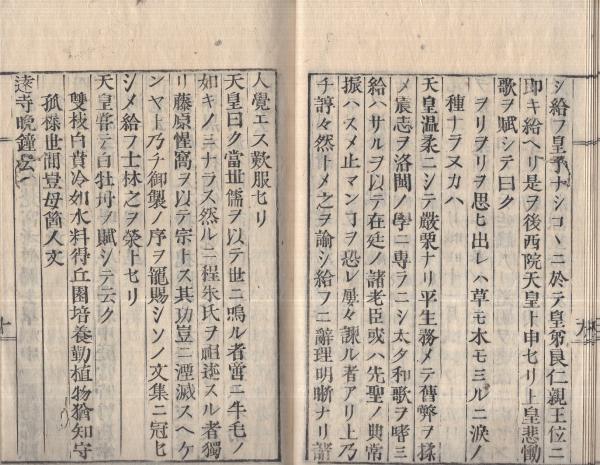 シ給フ皇子ナシコヽニ於テ皇弟良仁親王位ニ
即キ給ヘリ是ヲ後西院天皇ト申セリ上皇悲慟
歌ヲ賦シテ曰ク
ヲリヲリヲ思ヒ出レハ草モ木モミルニ涙ノ
種ナラヌカハ
天皇温柔ニシテ嚴栗ナリ平生務メテ舊弊ヲ揉
メ宸志ヲ洛閩ノ學ニ專ラニシ太タ和歌ヲ嗜ミ
給ハサルヲ以テ在廷ノ諸老臣或ハ先聖ノ典常
振ハスメ止マンヿヲ恐レ屢々諌ル者アリ上乃
チ諄々然トメ之ヲ諭シ給フニ辭理明晰ナリ諸
人覺エス歎服セリ
天皇曰ク當世儒ヲ以テ世ニ鳴ル者啻ニ牛毛ノ
如キノミナラス然ルニ程朱氏ヲ祖述スル者獨
リ藤原惺窩ヲ以テ宗トス其功豈ニ湮滅スヘケ
ンヤト乃チ御製ノ序ヲ寵賜シソノ文集ニ冠セ
シメ給フ士林之ヲ榮トセリ
天皇嘗テ白牡丹ノ賦シテ云ク
雙枝白賁冷如水料得丘園培養勤植物猶知守
孤操世間豈母箇人文
遠寺晩鐘云ク